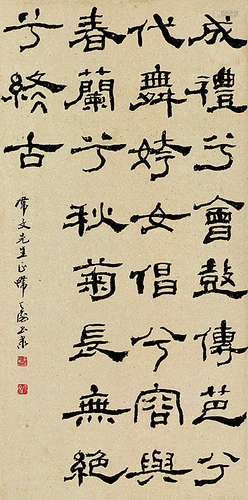 成禮兮會鼓傳芭兮
代舞姱女倡兮容與
春蘭兮秋菊長無絕
兮終古